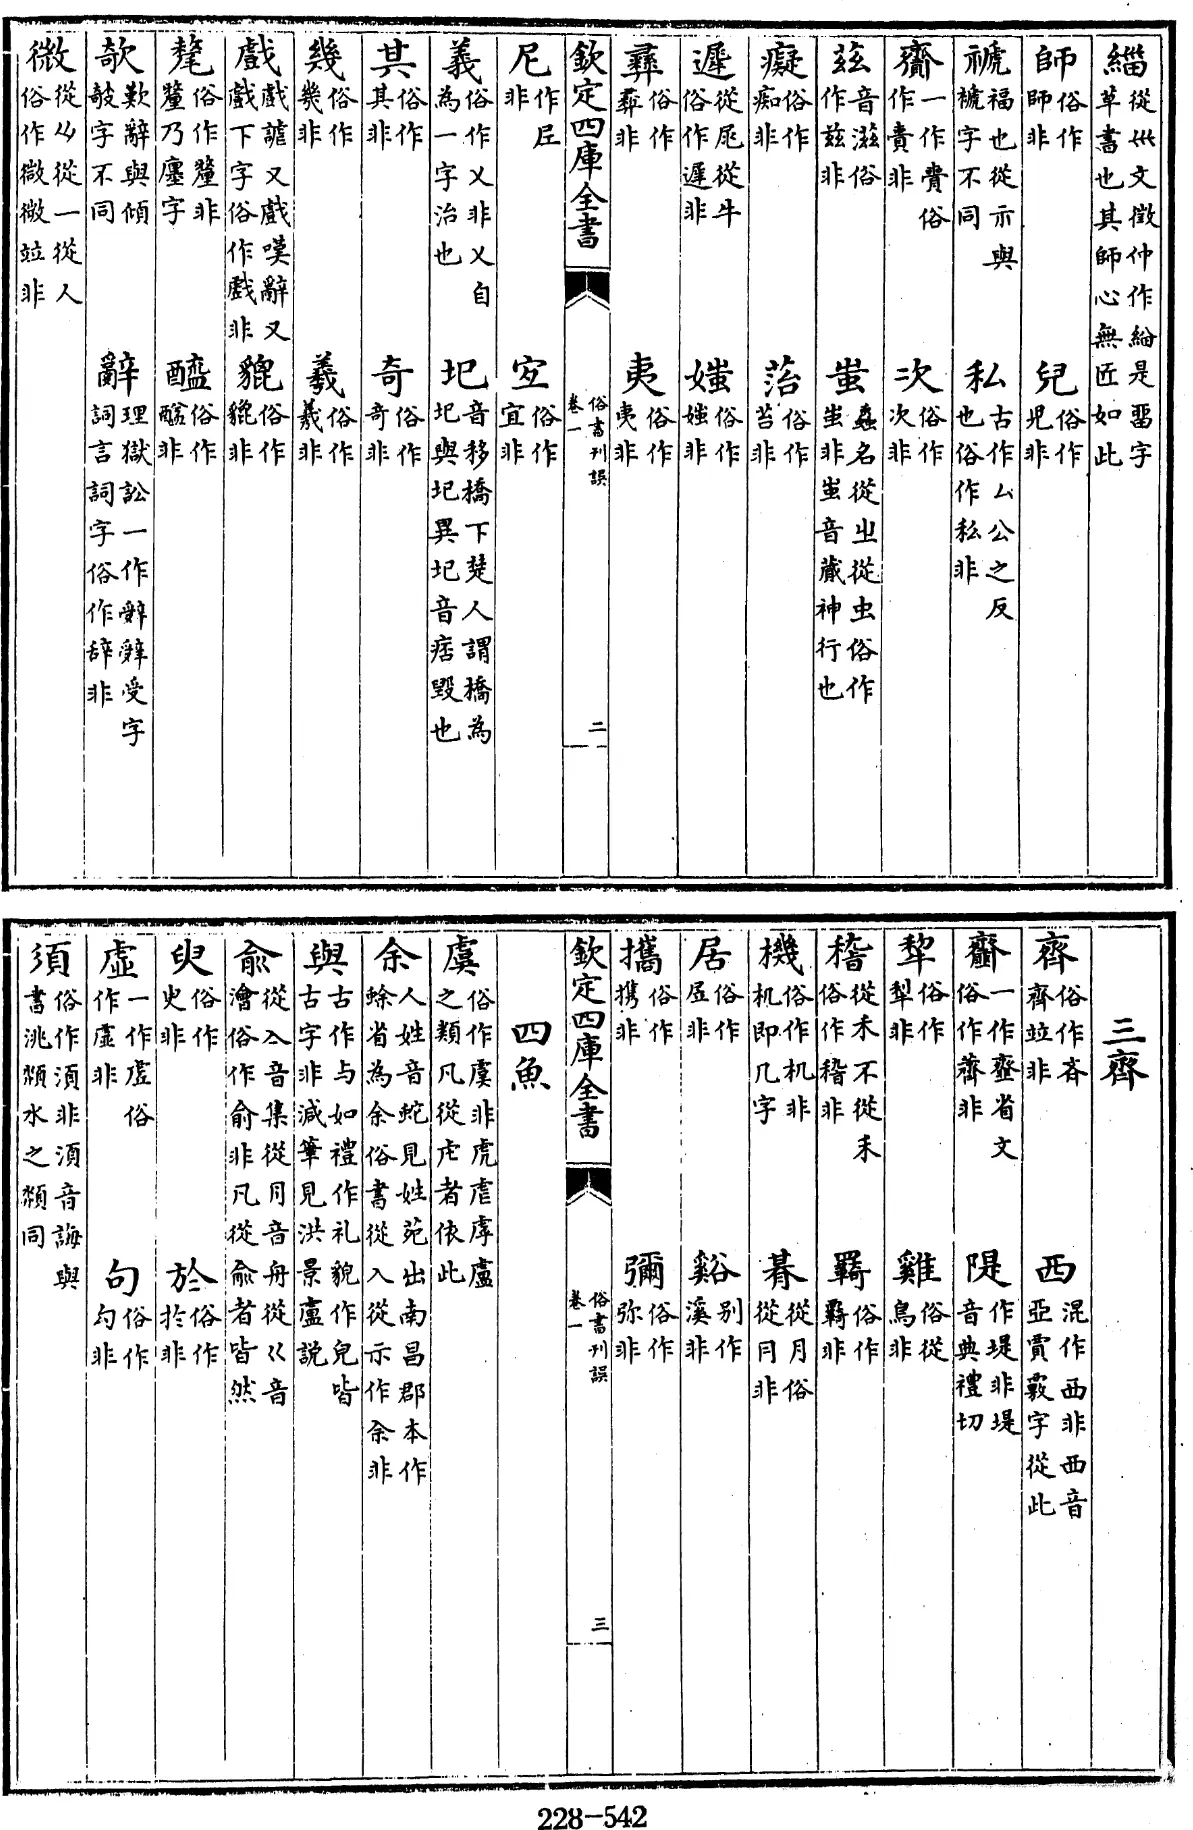 緇從𡿧文徵仲作緰是畱字草書也其師心無匠如此
師俗作師非 兒俗作児非
禠福也從示與褫字不同 私古作厶公之反也俗作私非
齎一作賷俗作賫非 次俗作次非
茲音滋俗作兹非 蚩蟲名從㞢從虫俗作蚩非蚩音蕆神行也
癡俗作痴非 菭俗作苔非
遲從𡰥從牛俗作遅非 媸俗作媸非
彝俗作彞非 夷俗作夷非
欽定四庫全書 俗書刊誤卷一 二
尼作𡰱非 宜俗作宜非
義俗作乂非乂自為一字治也 圯音移橋下楚人謂橋為圯與圮異圮音痞毀也
其俗作其非 奇俗作竒非
幾俗作㡬非 羲俗作羲非
戲戲謔又戲嘆辭又戲下字俗作戱非 貔俗作貔非
氂俗作釐非釐乃廛字 醯俗作醯非
欹歎辭與傾攲字不同 辭理獄訟一作辤辤受字詞言詞字俗作辞非
微從𠔿從一從人俗作微微竝非
三齊
齊俗作斉齊竝非 西混作襾非襾音亞賈覈字從此
齏一作齏省文俗作薺非 隄作堤非堤音典禮切
犂俗作犁非 雞俗從鳥非
稽從禾不從耒俗作稽非 羇俗作覉非
機俗作机非机即几字 朞從月俗從日非
居俗作㞐非 谿别作溪非
攜俗作携非 彌俗作弥非
欽定四庫全書 俗書刊誤卷一 三
四魚
虞俗作虞非虎虐虖盧之類凡從虍者依此
余人姓音蛇見姓苑出南昌郡本作蜍省為余俗書從入從示作佘非
與古作与如禮作礼貌作皃皆古字非減筆見洪景盧説
俞從亼音集從⺼音舟從巜音澮俗作俞非凡從俞者皆然
臾俗作史非 於俗作扵非
虛一作虗俗作虚非 句俗作勾非
須俗作湏非湏音誨與書洮頮水之頮同
228-542